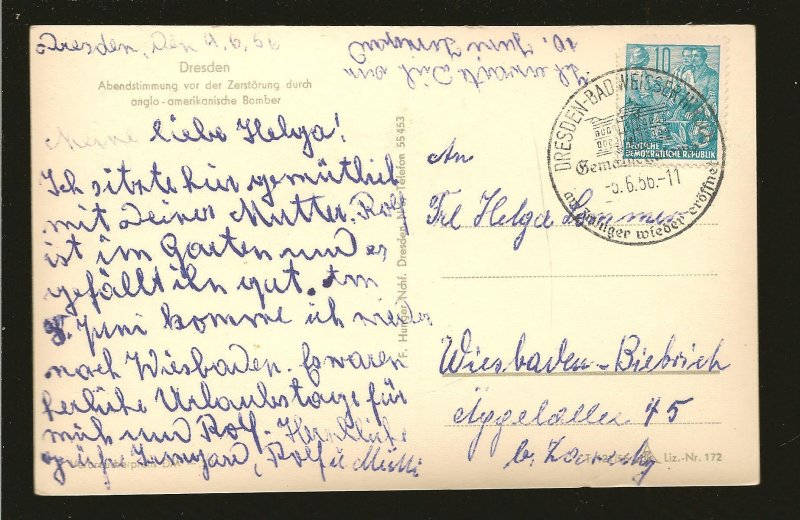 Dresden, Den 4.6.56
Dresden
Abendstimmung vor der Zerstörung durch
anglo-amerikanische Bomber
Meine liebe Helga!
Ich sitzte hier gemütlich
mit Deiner Mutter. Rolf
ist im Garten und es
gefällt ihn gut. Am
8. Juni komme ich wieder
nach Wiesbaden. Es waren
herliche Urlaubstage für
mich und Rolf. Herzliche
grüße Irmgard, Rolf u Mutti
Ich erwarte Dich am
10. Juni Irmgard
F. Hunger Nchf. Dresden Telefon 55453
10
DEUTSCHE
DEMOKRATISCHE REPUBLIK
DRESDEN-BAD WEISSER HIRSCH
-5.6.56.-11
wieder eröffnet
An
Frl Helga
Wiesbaden-Biebrich
Äppelallee 45
b.
Liz.-Nr. 172